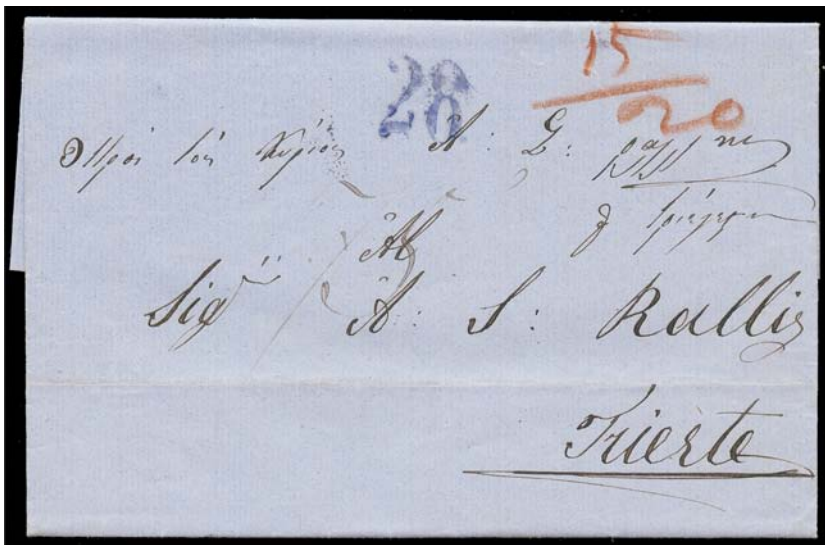 15
20
28
Πρὸς τὸν Κύριον Α: Σ: Ράλλην
Τριέστι
Al
Sig.r A: S: Rallis
Trieste